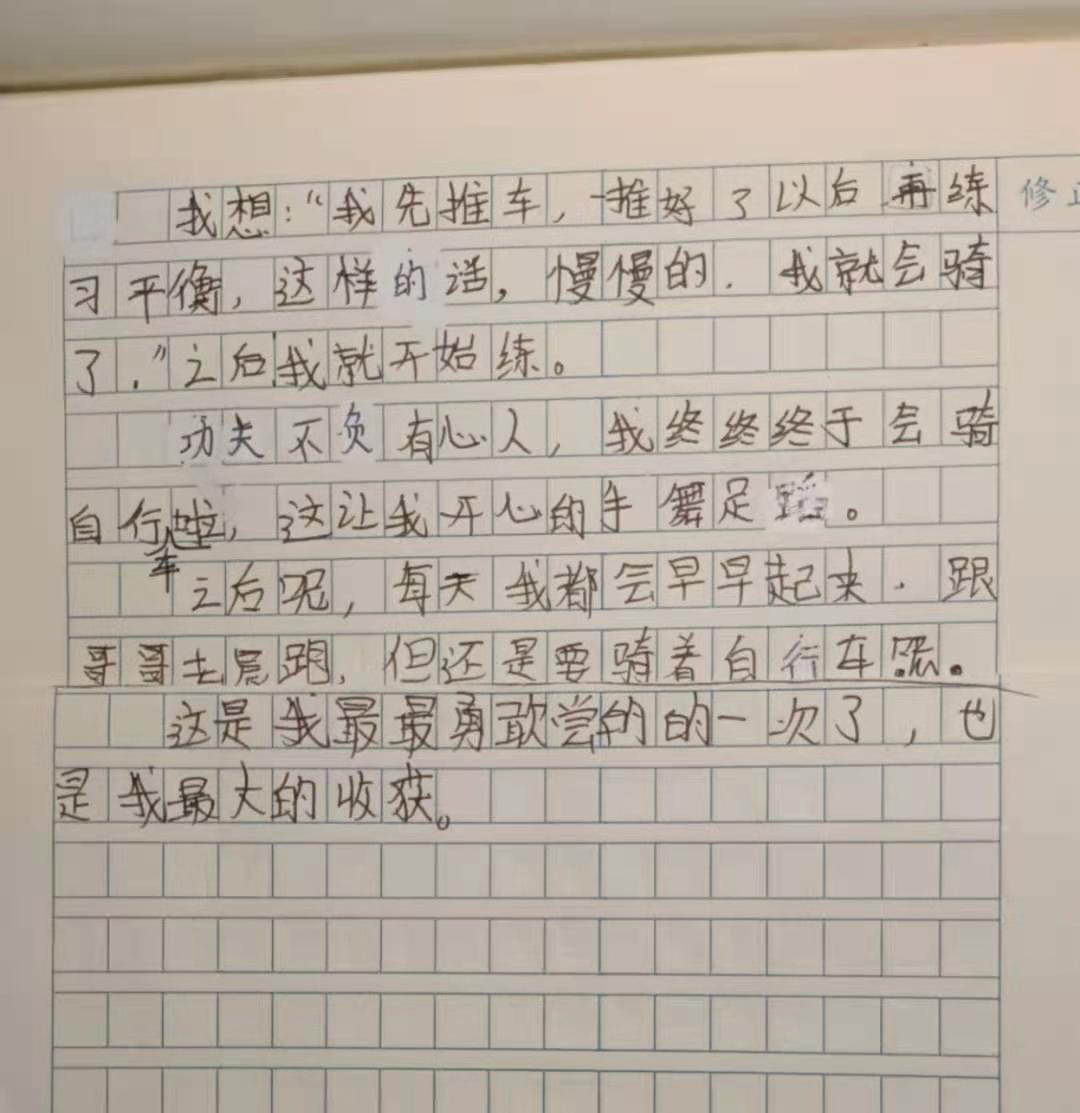 我想：“我先推车，推好了以后再练 修正
习平衡，这样的话，慢慢的．我就会骑
了．”之后我就开始练。
功夫不负有心人，我终终终于会骑
自行车啦，这让我开心的手舞足蹈。
之后呢，每天我都会早早起来．跟
哥哥去晨跑，但还是要骑着自行车
这是我最最勇敢尝的的一次了，也
是我最大的收获。